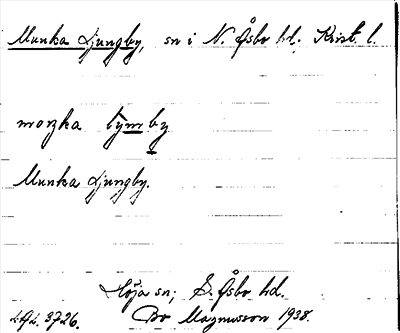 Munka Ljungby, sn i N. Åsbo hd. Krist. l.
moŋka
by
Munka Ljungby.
Höja sn; S. Åsbo hd.
3726. Bo Magnusson 1938.